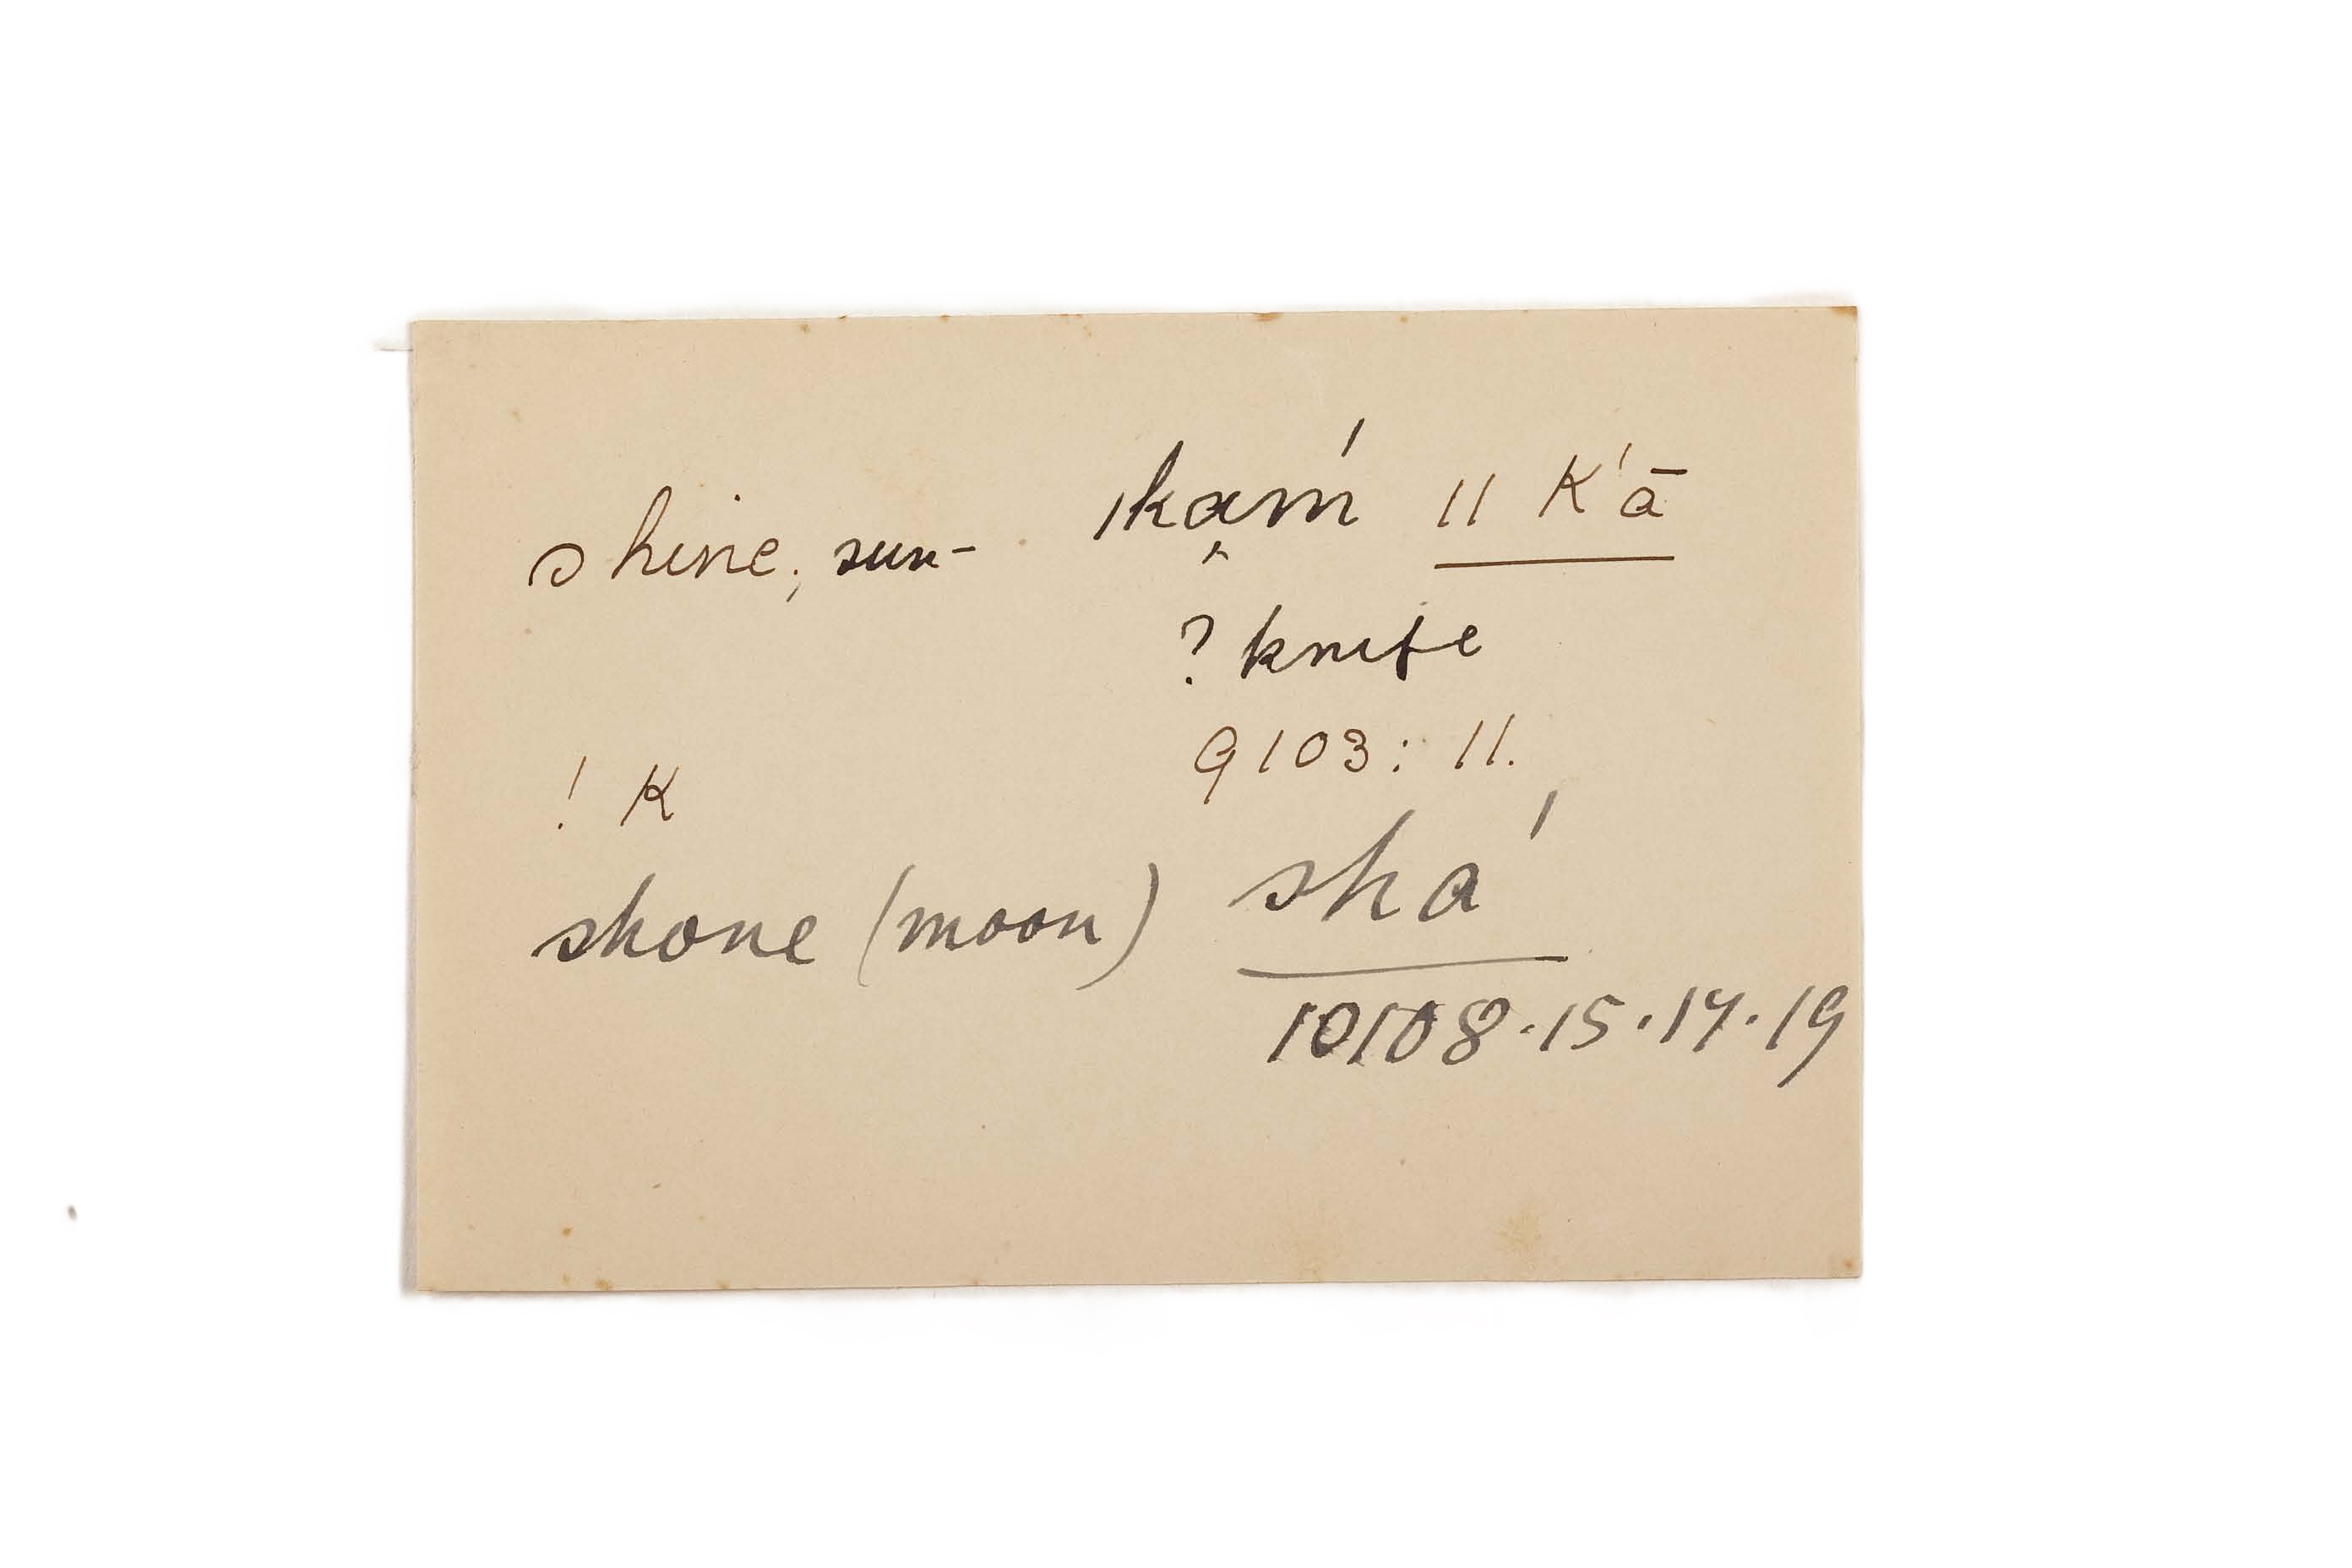 shine, sun- |ka̭ḿ || K'ā
? knife
9103: 11.
! K
shone (moon) shá
10108.15.17.19